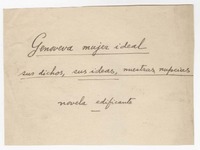 Genoveva mujer ideal
sus dichos, sus ideas, nuestras
novela edificante